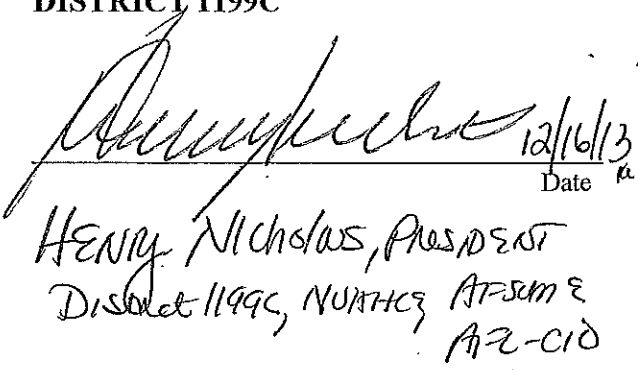 DISTRICT 1199C
12/16/13
Date
HENRY NICHOLAS, PRESIDENT
District 1199C, NUHHCE AFSCME
AFL-CIO